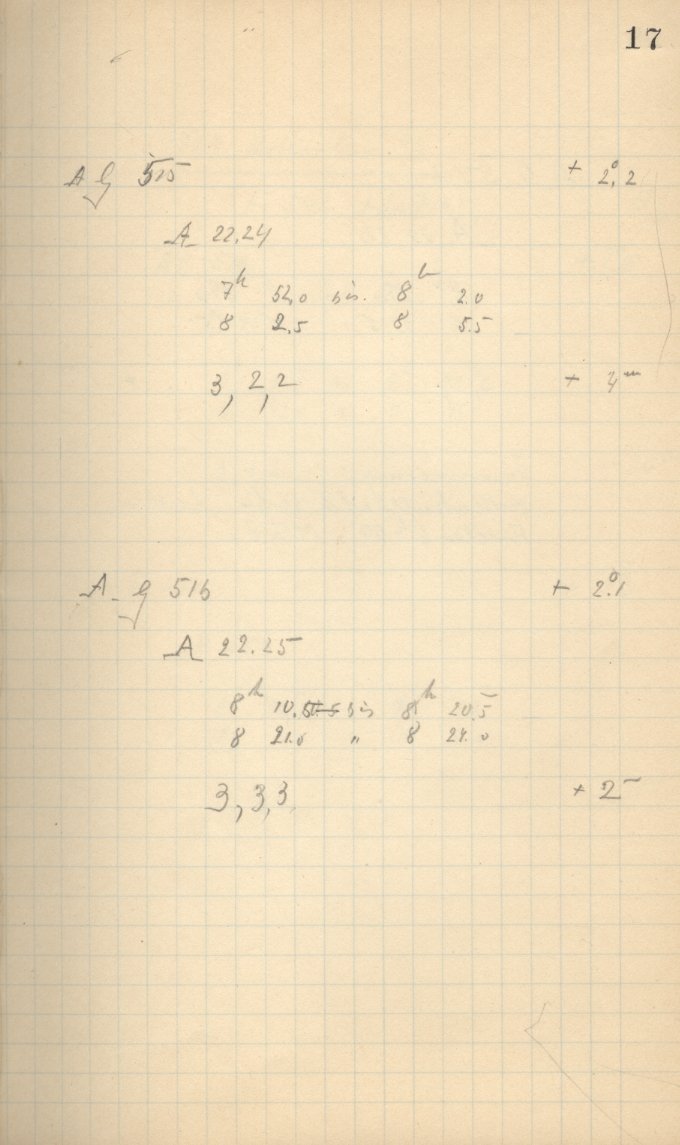 17
A G 515 + 2°.2
A 22.24
7h 52.0 bis. 8h 2.0
8 2.5 8 5.5
3, 2, 2 + 4m
A G 516 + 2°.1
A 22.25
8h 10.5 bis 8h 20.5
8 21.0 " 8 24.0
3, 3, 3 + 2